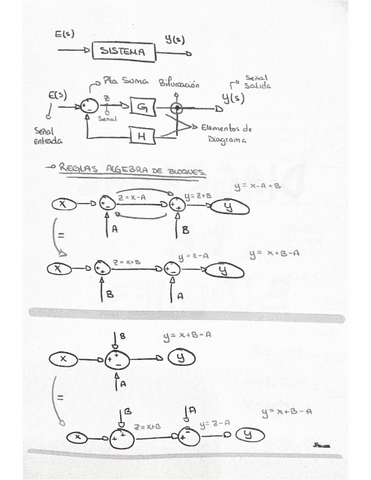 E(s) SISTEMA Y(s)
Pto Suma Bifurcación Señal Salida
E(s) Z G Y(s)
Señal
Señal entrada
H
Elementos de Diagrama
→ REGLAS ALGEBRA DE BLOQUES.
y = x-A+B
x + - z = x-A + + y = z+B y
A B
=
y = x+B-A
x + + z = x+B + - y = z-A y
B A
B y = x+B-A
x + + - y
A
=
B A y = x+B-A
x + + z = x+B + - y = z-A y